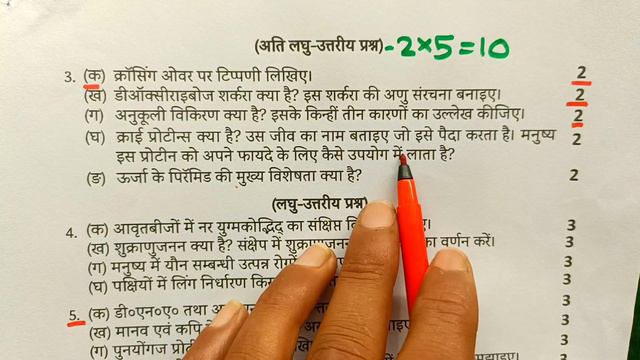 (अति लघु-उत्तरीय प्रश्न) -2×5=10
3. (क) क्रॉसिंग ओवर पर टिप्पणी लिखिए। 2
(ख) डीऑक्सीराइबोज शर्करा क्या है? इस शर्करा की अणु संरचना बनाइए। 2
(ग) अनुकूली विकिरण क्या है? इसके किन्हीं तीन कारणों का उल्लेख कीजिए। 2
(घ) क्राई प्रोटीन्स क्या है? उस जीव का नाम बताइए जो इसे पैदा करता है। मनुष्य 2
इस प्रोटीन को अपने फायदे के लिए कैसे उपयोग में लाता है?
(ङ) ऊर्जा के पिरॅमिड की मुख्य विशेषता क्या है? 2
(लघु-उत्तरीय प्रश्न)
4. (क) आवृतबीजों में नर युग्मकोद्भिद् का संक्षिप्त 3
(ख) शुक्राणुजनन क्या है? संक्षेप में शुक्राणुजनन का वर्णन करें। 3
(ग) मनुष्य में यौन सम्बन्धी उत्पन्न 3
(घ) पक्षियों में लिंग निर्धारण 3
5. (क) डी०एन०ए० तथा 3
(ख) मानव एवं कपि 3
(ग) पुनर्योगज 3